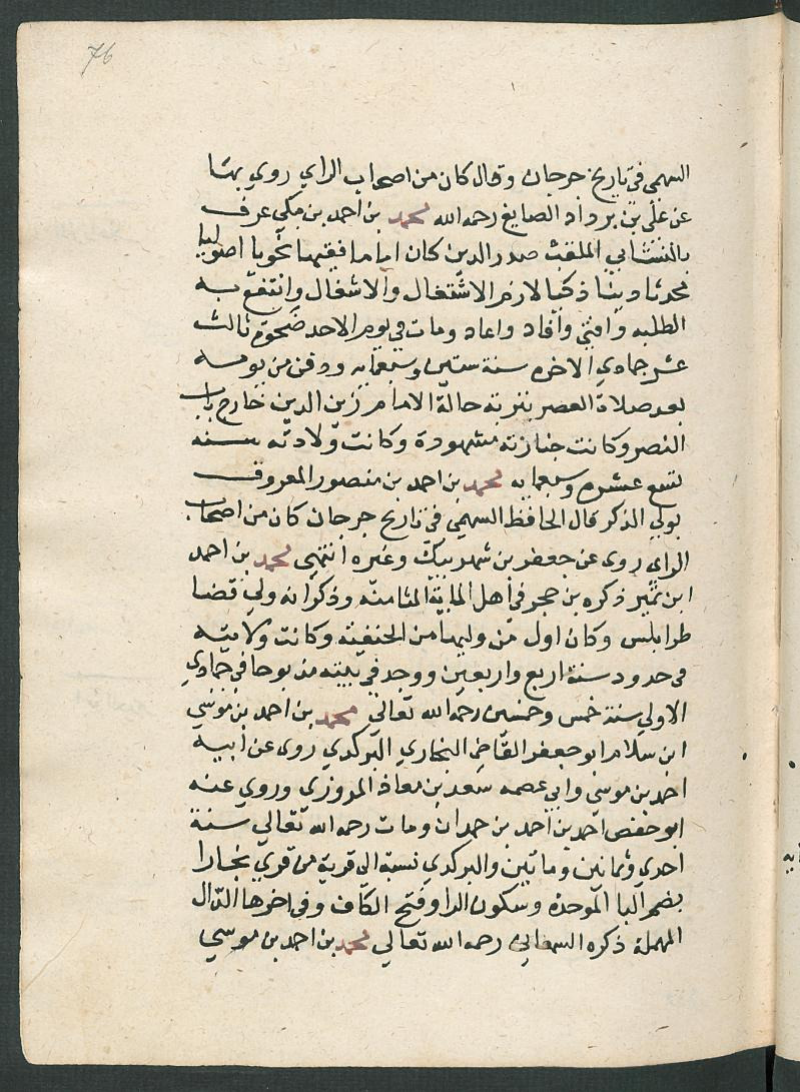 76
السهمي في تاريخ جرجان وقال كان من اصحاب الراي روي بها
عن علي بن برداد الصايغ رحمه الله محمد بن احمد بن مكي عرف
الملقب صدر الدين كان اماما فقيها نحويا اصوليا
محدثا دينا ذكيا لازم الاشتغال والاشغال وانتفع به
الطلبه وافتي وأفاد واعاد ومات في يوم الاحد ضحوة ثالث
عشر جمادي الاخرة سنة ستين وسبعمايه ودفن من يومه
بعد صلاة العصر بتربة خالة الامام زين الدين خارج باب
النصر وكانت جنازته مشهودة وكانت ولادته سنه
تسع عشرة وسبعمايه محمد بن احمد بن منصور المعروف
بولي الذكر قال الحافظ السهمي في تاريخ جرجان كان من اصحاب
الراي روي عن جعفر بن وغيره انتهي محمد بن احمد
ابن نمير ذكره بن حجر في أهل الماية الثامنه وذكر انه ولي قضا
طرابلس وكان اول من وليها من الحنفيه وكانت ولايته
في حدود سنة اربع واربعين ووجد في بيته مذبوحا في جمادي
الاولي سنة خمس وخمسين رحمه الله تعالي محمد بن احمد بن موسي
ابن سلام ابو جعفر القاضي البخاري البركدي روي عن أبيه
احمد بن موسي وابي عصمه سعد بن معاذ المروزي وروي عنه
ابو حفص احمد بن أحمد بن حمدان ومات رحمه الله تعالي سنة
احدي وثمانين وماتين والبركدي نسبة الي قرية من قري بخارا
بضم البا الموحدة وسكون الرا وفتح الكاف وفي اخرها الدال
المهملة ذكره السمعاني رحمه الله تعالي محمد بن احمد بن موسي